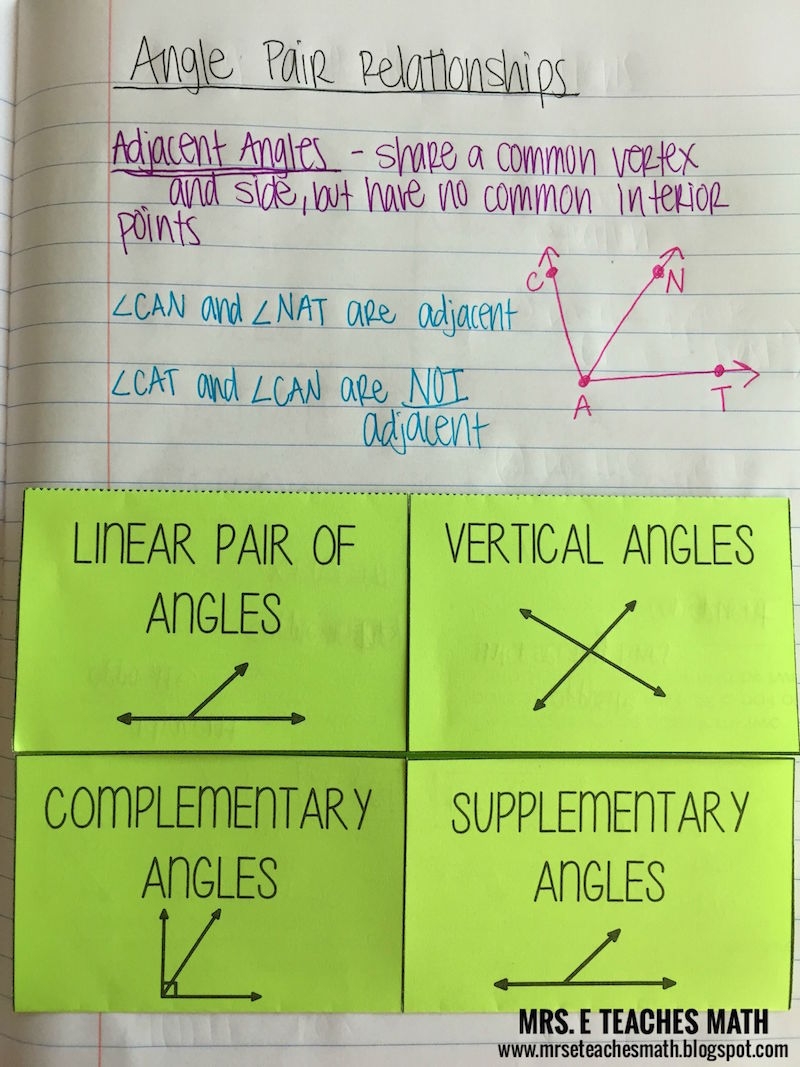 Angle Pair Relationships
Adjacent Angles - share a common vertex
and side, but have no common interior
points
C
N
∠CAN and ∠NAT are adjacent
∠CAT and ∠CAN are NOT
adjacent
A
T
LINEAR PAIR OF
ANGLES
VERTICAL ANGLES
COMPLEMENTARY
ANGLES
SUPPLEMENTARY
ANGLES
MRS. E TEACHES MATH
www.mrseteachesmath.blogspot.com